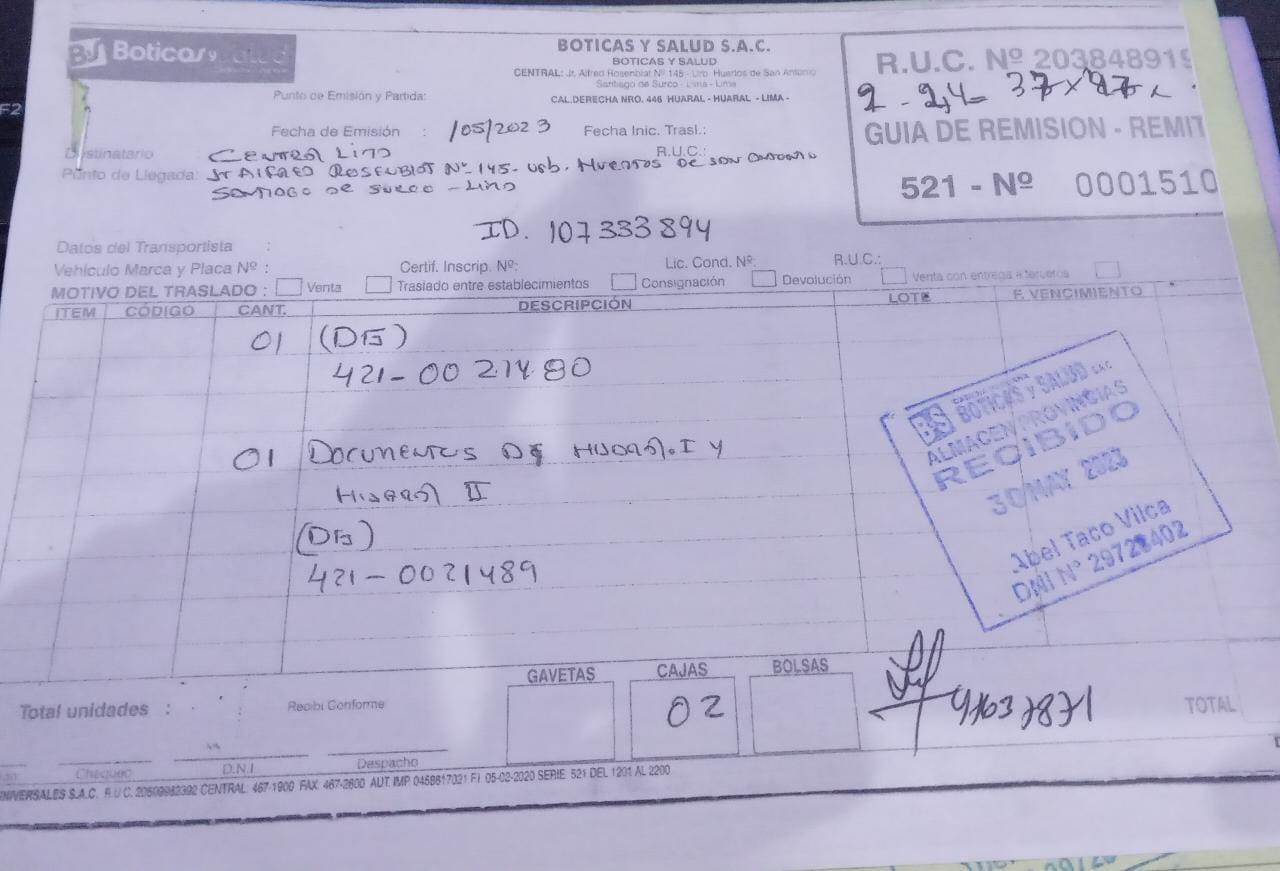 BS Boticas y Salud
BOTICAS Y SALUD S.A.C.
BOTICAS Y SALUD
CENTRAL: Jr. Alfred Rosenblat Nº 145 - Urb. Huertos de San Antonio
Santiago de Surco - Lima - Lima
CAL.DERECHA NRO. 446 HUARAL - HUARAL - LIMA -
R.U.C. Nº 203848919
GUIA DE REMISION - REMIT
521 - Nº 0001510
F2
Punto de Emisión y Partida:
Fecha de Emisión : /05/2023 Fecha Inic. Trasl.:
Destinatario CENTRAL LIMA R.U.C.:
Punto de Llegada: Jr ALFRED ROSENBLAT Nº 145- Urb. Huertos DE SAN ANTONIO
SANTIAGO DE SURCO - LIMA
ID. 107333894
Datos del Transportista :
Vehículo Marca y Placa Nº : Certif. Inscrip. Nº: Lic. Cond. Nº: R.U.C.:
MOTIVO DEL TRASLADO : Venta Traslado entre establecimientos Consignación Devolución Venta con entrega a terceros
ITEM CÓDIGO CANT. DESCRIPCIÓN LOTE F. VENCIMIENTO
01 (DE)
421-0021480
01 DOCUMENTOS DE HUARAL I Y
HUARAL II
(DE)
421-0021489
BS BOTICAS Y SALUD SAC
ALMACEN PROVINCIAS
RECIBIDO
30 MAY 2023
Abel Taco Vilca
DNI N° 29728402
GAVETAS CAJAS BOLSAS
02
Total unidades : Recibi Conforme
TOTAL
Chequeo D.N.I. Despacho
NIVERSALES S.A.C. R.U.C. 20509982392 CENTRAL: 467-1900 FAX: 467-2600 AUT. IMP 0458617021 F.I. 05-02-2020 SERIE. 521 DEL 1201 AL 2200